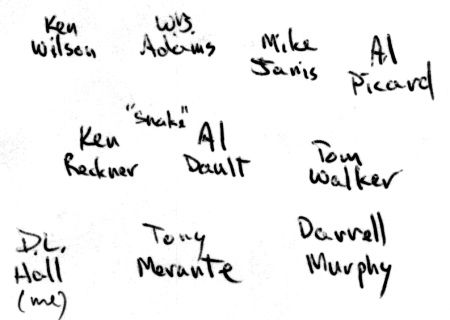 Ken W.B. Mike Al
Wilson Adams Janis Picard
Ken "Snake" Al Tom
Reckner Dault Walker
D.L. Tony Darrell
Hall Merante Murphy
(me)